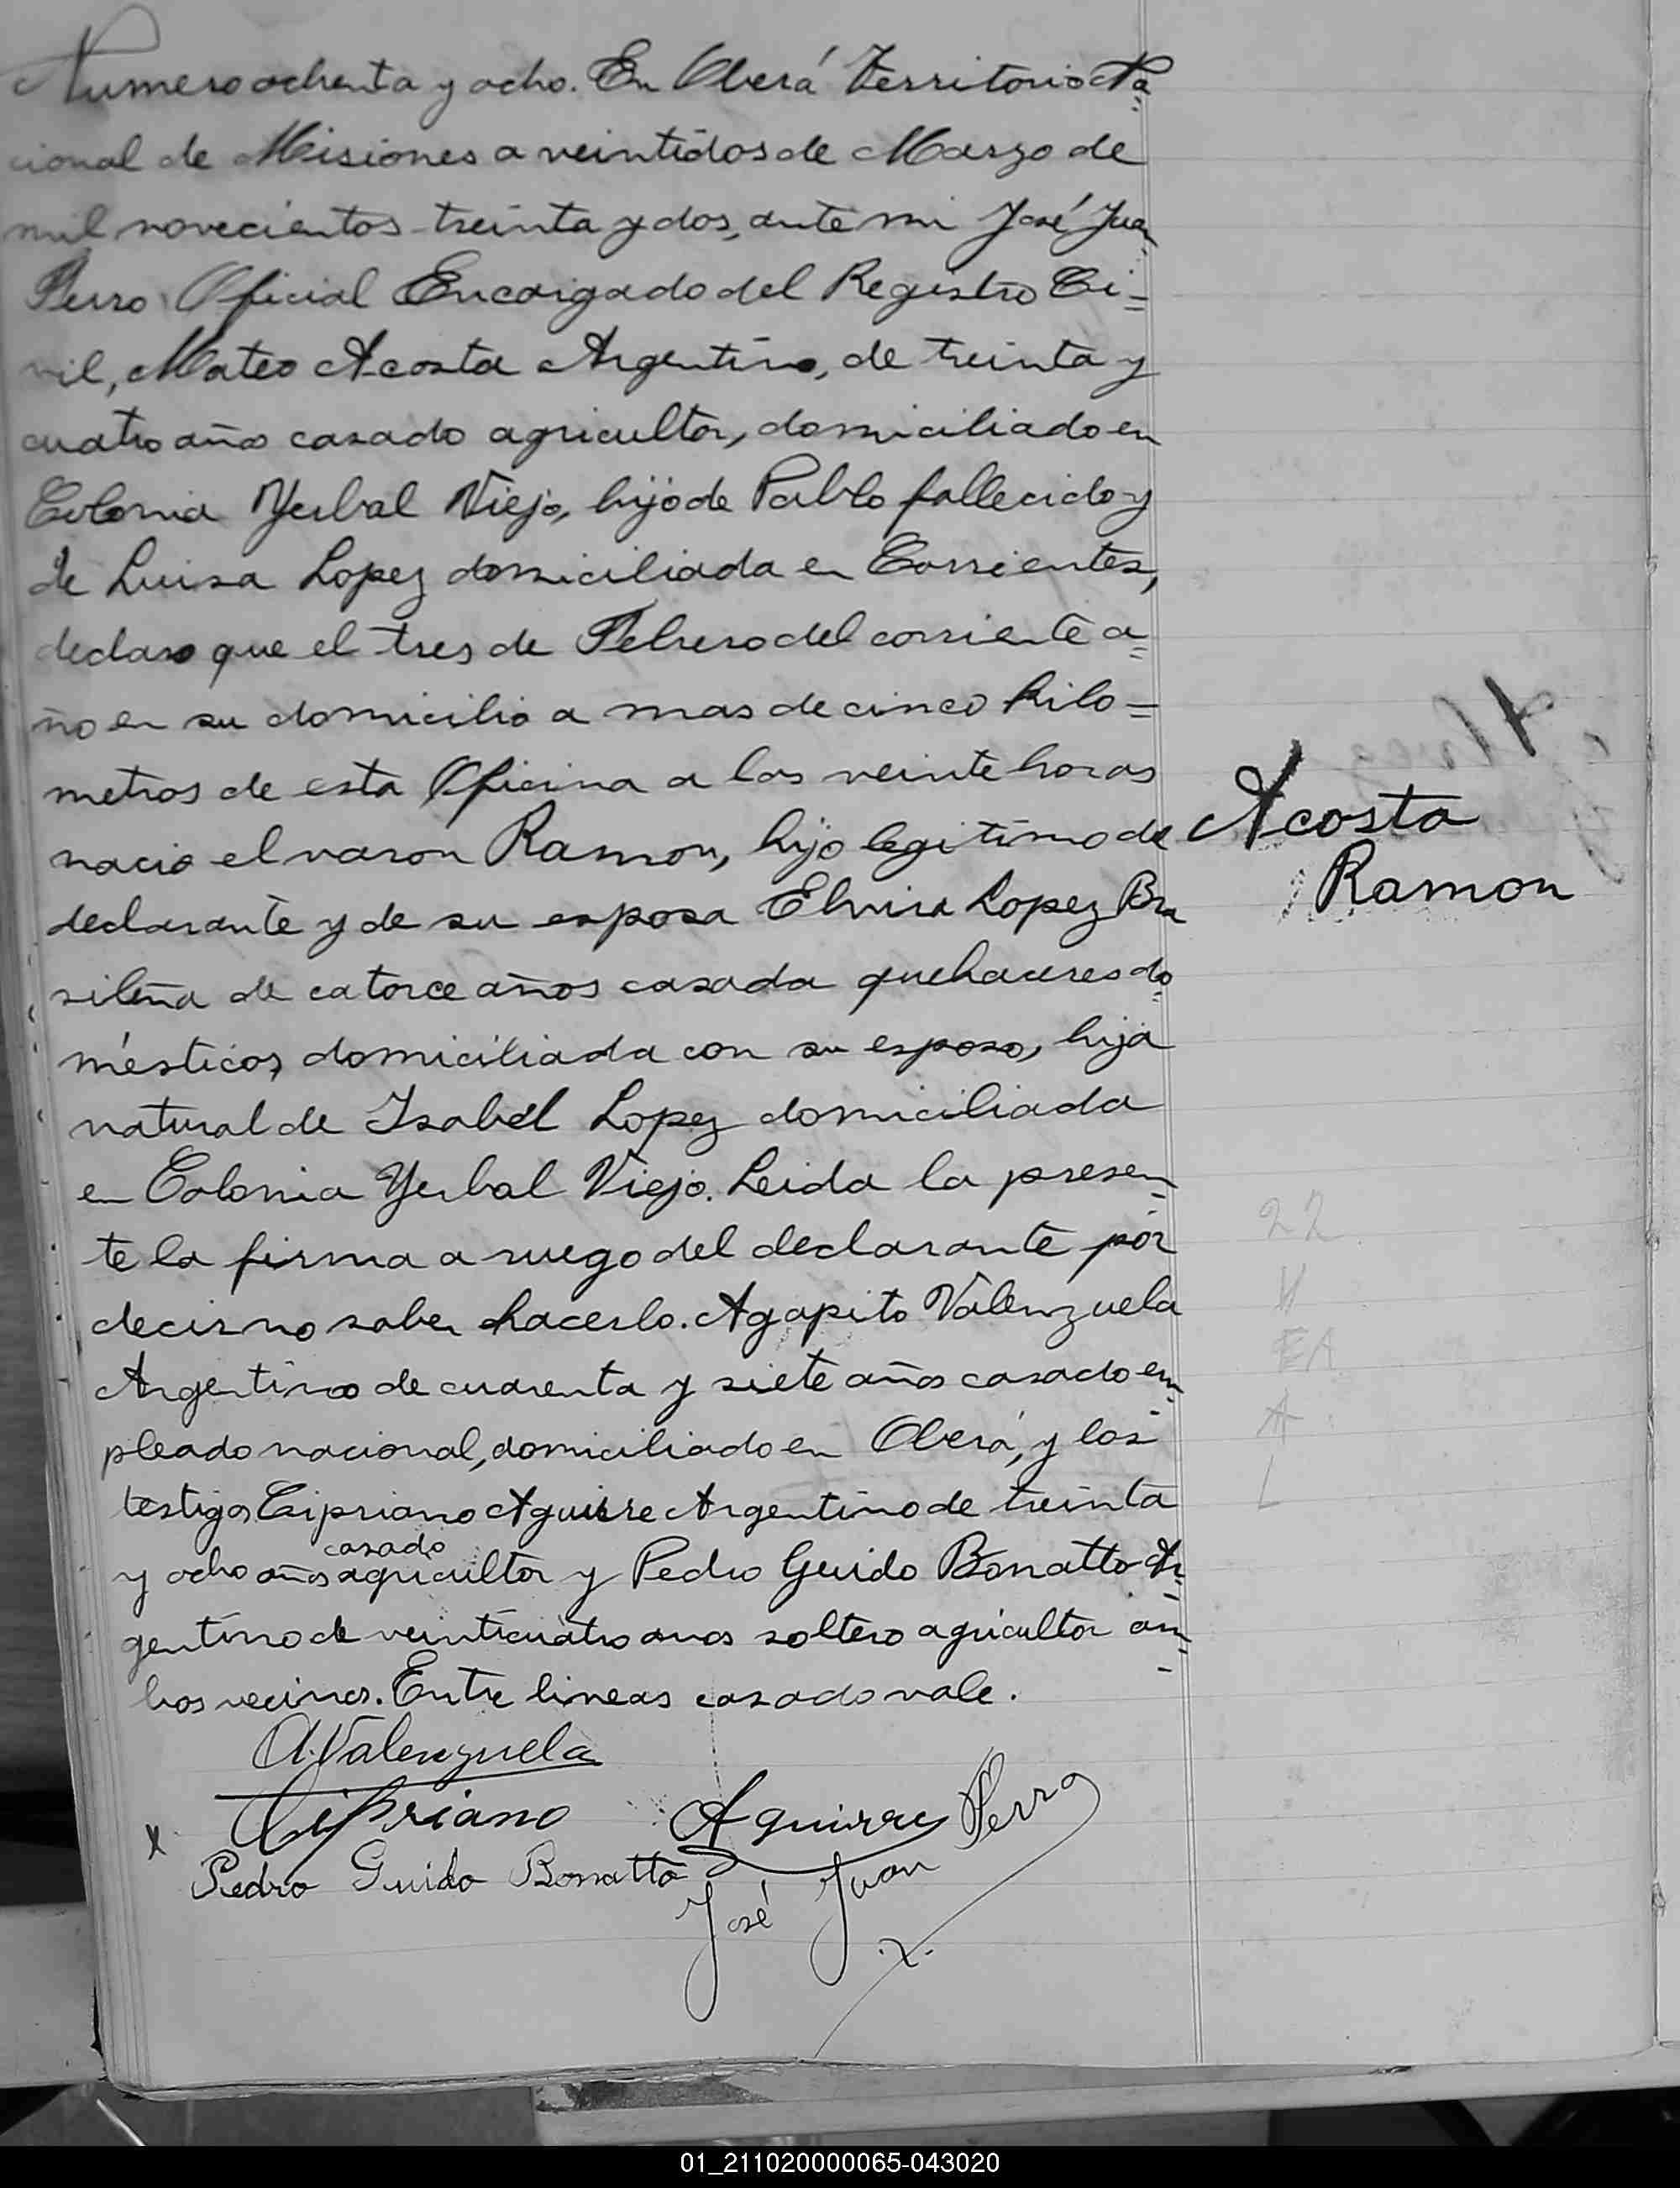 Numero ochenta y ocho. En Oberá Territorio Na=
cional de Misiones a veintidos de Marzo de
mil novecientos treinta y dos, ante mi José Juan
Ferro Oficial Encargado del Registro Ci=
vil, Mateo Acosta Argentino, de treinta y
cuatro año casado agricultor, domiciliado en
Colonia Yerbal Viejo, hijo de Pablo fallecido y
de Luisa Lopez domiciliada en Corrientes,
declaro que el tres de Febrero del corriente a=
ño en su domicilio a mas de cinco kilo=
metros de esta Oficina a las veinte horas
nacio el varon Ramon, hijo legitimo del
declarante y de su esposa Elvira Lopez Bra
sileña de catorce años casada quehaceres do=
mésticos, domiciliada con su esposo, hija
natural de Isabel Lopez domiciliada
en Colonia Yerbal Viejo. Leida la presen=
te la firma a ruego del declarante por
decir no saber hacerlo. Agapito Valenzuela
Argentino de cuarenta y siete años casado em=
pleado nacional, domiciliado en Oberá, y los
testigos Cipriano Aguirre Argentino de treinta
casado
y ocho años agricultor y Pedro Guido Bonatto Ar=
gentino de veinticuatro anos soltero agricultor am=
bos vecinos. Entre lineas casado vale.
Acosta
Ramon
22
V
EA
A
L
A. Valenzuela
Cipriano Aguirre
x Pedro Guido Bonatto
José Juan Ferro
01_211020000065-043020